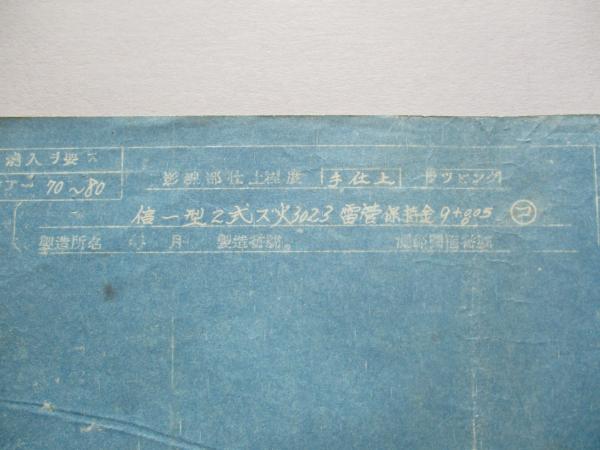 剤入ヲ要ス
70～80 影線部仕上程度 手仕上 ラッピング
信一型2式ス火3023 雷管保持金 9+805 コ
製造所名 年 月 製造番號